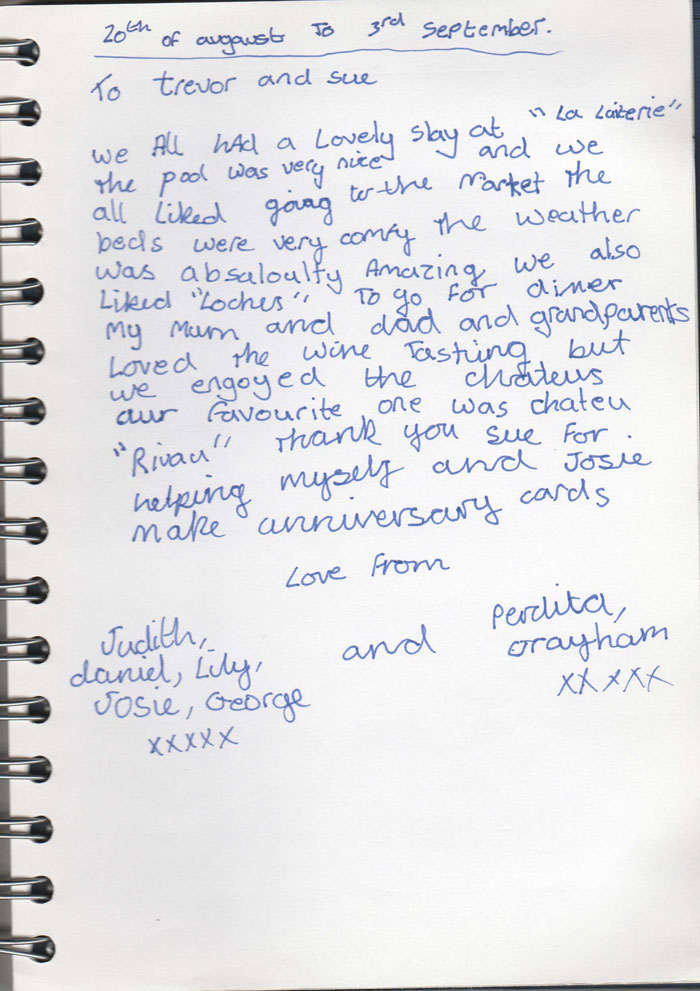 20th of augaust To 3rd September.
To trevor and sue
We All hAd a Lovely stay at "La Laiterie"
the pool was very nice and we
all Liked going to the Market the
beds were very comfy the weather
was absaloulty Amazing we also
Liked "Loches" To go For diner
My Mum and dad and grandparents
Loved the wine Tasting but
we engoyed the chateus
our favourite one was chateu
"Rivau" thank you sue For
helping myself and Josie
make anniversary cards
Love From
Judith, and Perdita,
daniel, Lily, Grayham
Josie, George xxxxx
xxxxx